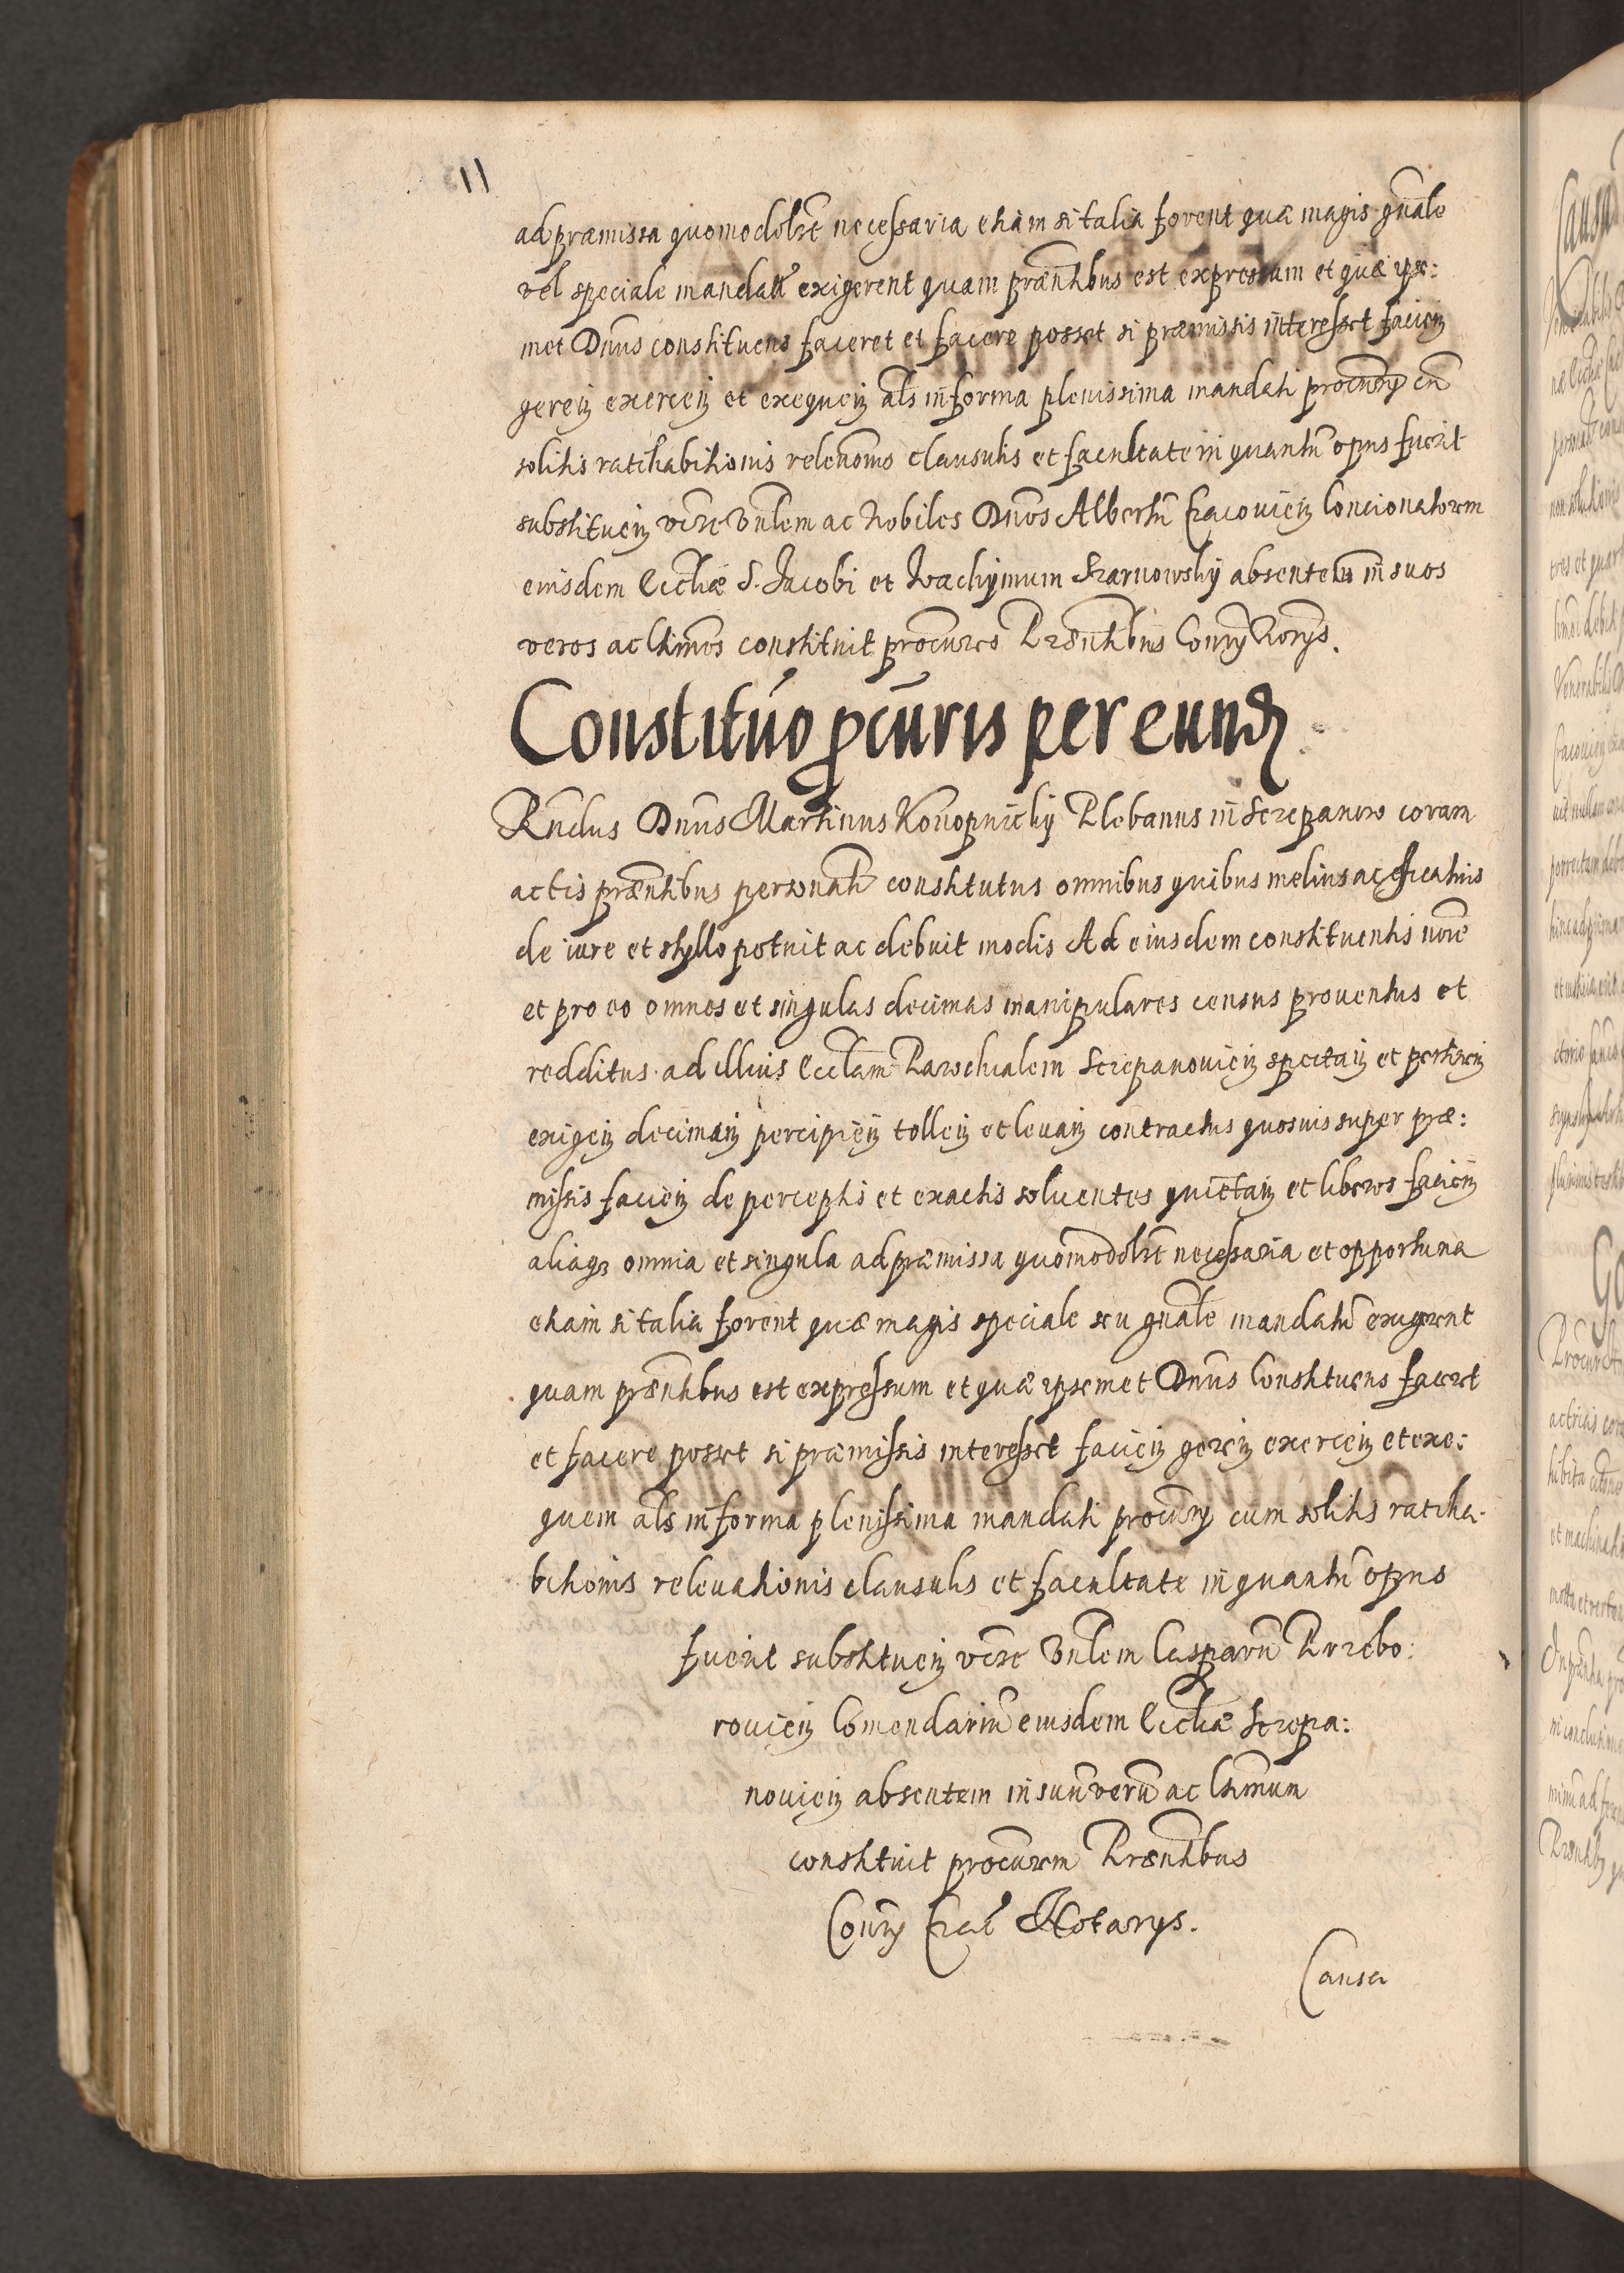 ad præmissa quomodolibet necessaria etiam si talia forent quæ magis gnale
vel speciale mandatu exigerent quam præntibus est expressum et quæ ipse:
met Dnus constituens faceret et facere posset si præmissis interesset facien
geren exercen et exequen als in forma plenissima mandati procurry cu
solitis ratihabitionis relevonis clausulis et facultate in quantu opus fuerit
substituen vere Vnlem ac Nobiles Dnos Albertu Cracovien Concionatorem
eiusdem Eccliæ S. Jacobi et Joachymum Szarnowsky absentes in suos
veros ac ltimos constituit procures Præntibus Conry Norys.
Constitutio pcuris per eund
Rndus Dnus Martinus Konopnicky Plebanus in Sczepanow coram
actis præntibus personalr constitutus omnibus quibus melius ac efficatius
de iure et stylo potuit ac debuit modis Ad eiusdem constituentis nore
et pro eo omnes et singulas decimas manipulares census proventus et
redditus ad illius Ecclam Parochialem Sczepanovien spectan et pertinen
exigen deciman percipien tollen et levan contractus quosvis super præ:
missis facien de perceptis et exactis solventes quietan et liberos facien
aliaq omnia et singula ad præmissa quomodolibet necessaria et opportuna
etiam si talia forent quæ magis speciale seu gnale mandatu exigerent
quam præntibus est expressum et quæ ipsemet Dnus Constituens faceret
et facere posset si præmissis interesset facien geren exercen et exe:
quem als in forma plenissima mandati procury cum solitis ratiha-
bitionis relevationis clausulis et facultate in quantu opus
fuerit substituen vere Vnlem Casparu Przebo:
rovien Comendariu eiusdem Eccliæ Sczepa:
novien absentem in suu veru ac ltimum
constituit procurem Præntibus
Conry Crac Notarys.
Causa